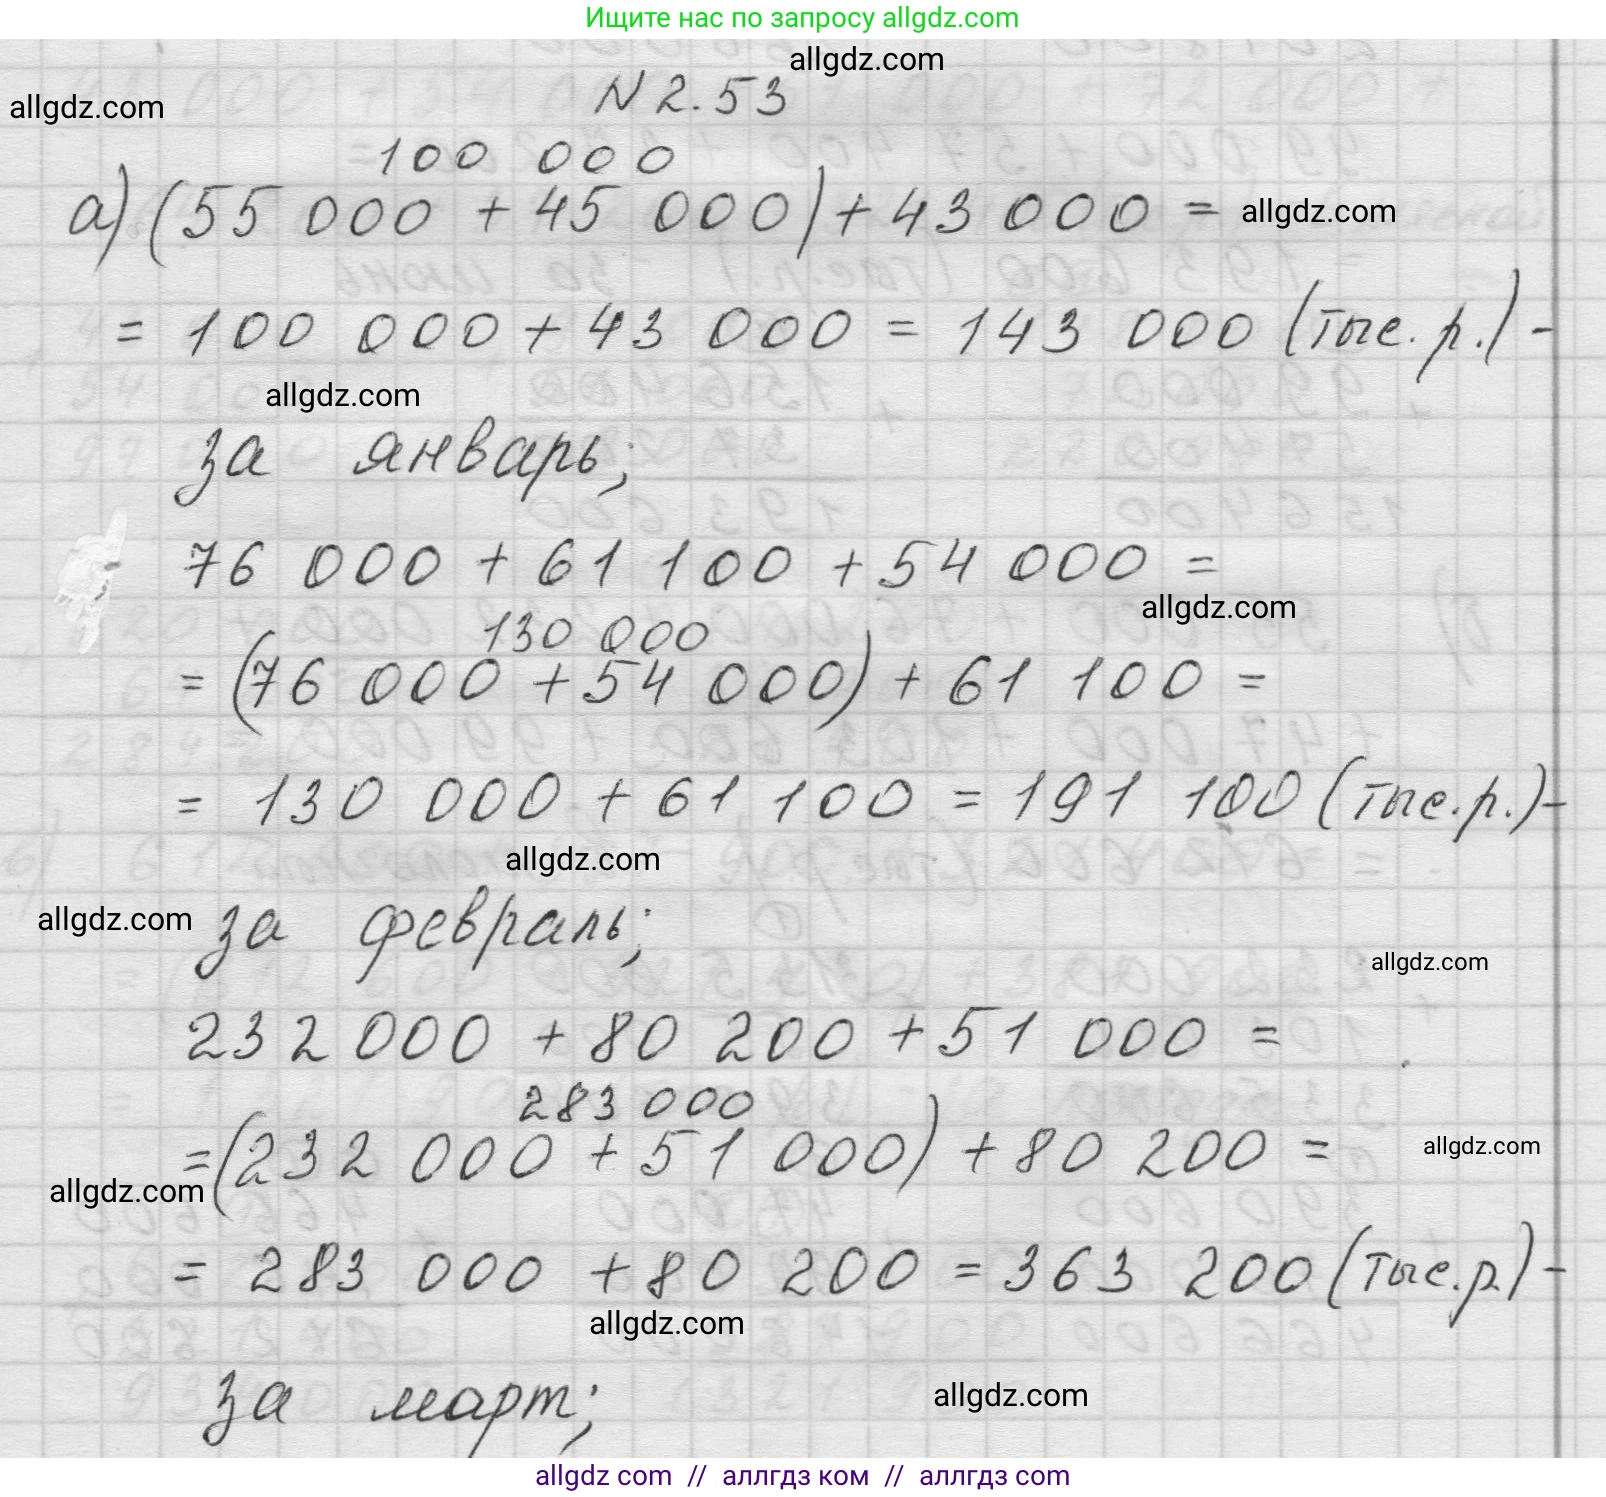 Ищите нас по запросу allgdz.com
allgdz.com
N 2.53
allgdz.com
100 000
а) (55 000 + 45 000) + 43 000 = allgdz.com
= 100 000 + 43 000 = 143 000 (тыс. р.) -
allgdz.com
за январь;
76 000 + 61 100 + 54 000 =
allgdz.com
130 000
= (76 000 + 54 000) + 61 100 =
= 130 000 + 61 100 = 191 100 (тыс. р.) -
allgdz.com
allgdz.com
за февраль;
allgdz.com
232 000 + 80 200 + 51 000 =
283 000
= (232 000 + 51 000) + 80 200 = allgdz.com
allgdz.com
= 283 000 + 80 200 = 363 200 (тыс. р.) -
allgdz.com
за март;
allgdz.com
allgdz com // аллгдз ком // аллгдз com